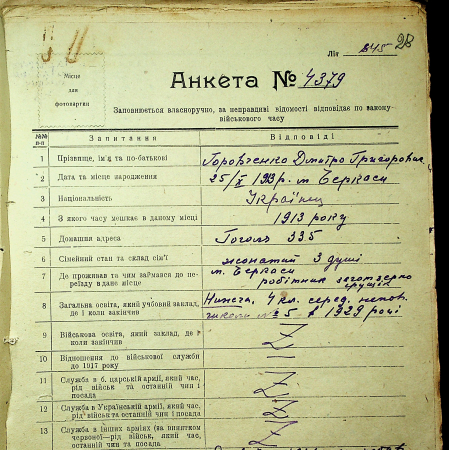 28
Літ 845
Місце
для
фотокартки
Анкета № 4379
Заповнюється власноручно, за неправдиві відомості відповідає по закону
військового часу
№№
п-п
Запитання
Відповіді
1 Прізвище, ім'я та по-батькові
Дмитро Григорович
2 Дата та місце народження
25/X 1913 р. м Черкаси
3 Національність
Українец
4 З якого часу мешкає в даному місці
1913 року
5 Домашня адреса
Гоголь 335
6 Сімейний стан та склад сім'ї
жонатий 3 душі
7 Де проживав та чим займався до пе-
реїзду в дане місце
м. Черкаси
робітник
8 Загальна освіта, який учбовий заклад,
де і коли закінчив
4 кл. серед.
школи № 5 в 1929 році
9 Військова освіта, який заклад, де і
коли закінчив
10 Відношення до військової служби
до 1917 року
11 Служба в б. царській армії, який час,
рід військ та останній чин і
посада
12 Служба в Українській армії, який час,
рід військ та останній чин і посада
13 Служба в інших арміях (за винятком
червоної—рід військ, який час,
останній чин та посада)